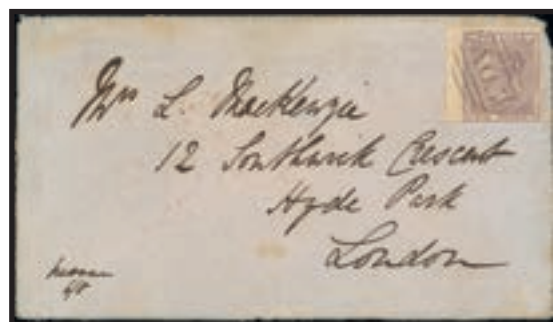 Mrs L. MacKenzie
12 Southwick Crescent
Hyde Park
London